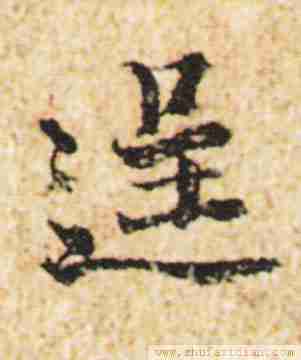 逞
www.shufazidian.com